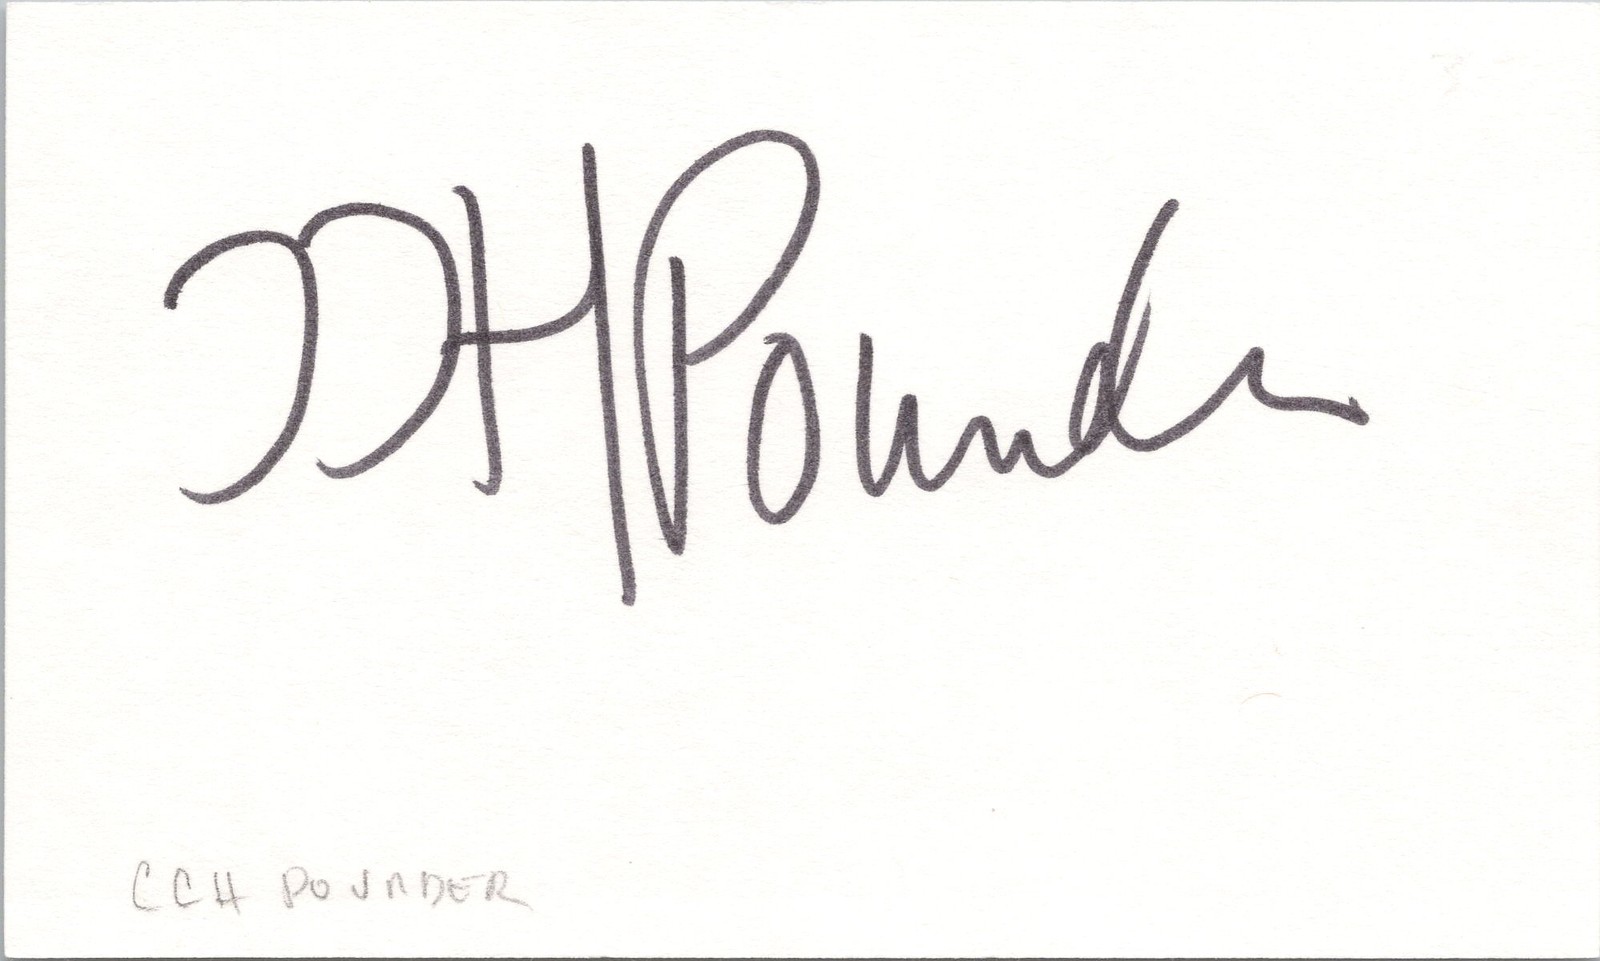 CCH Pounder
CCH POUNDER